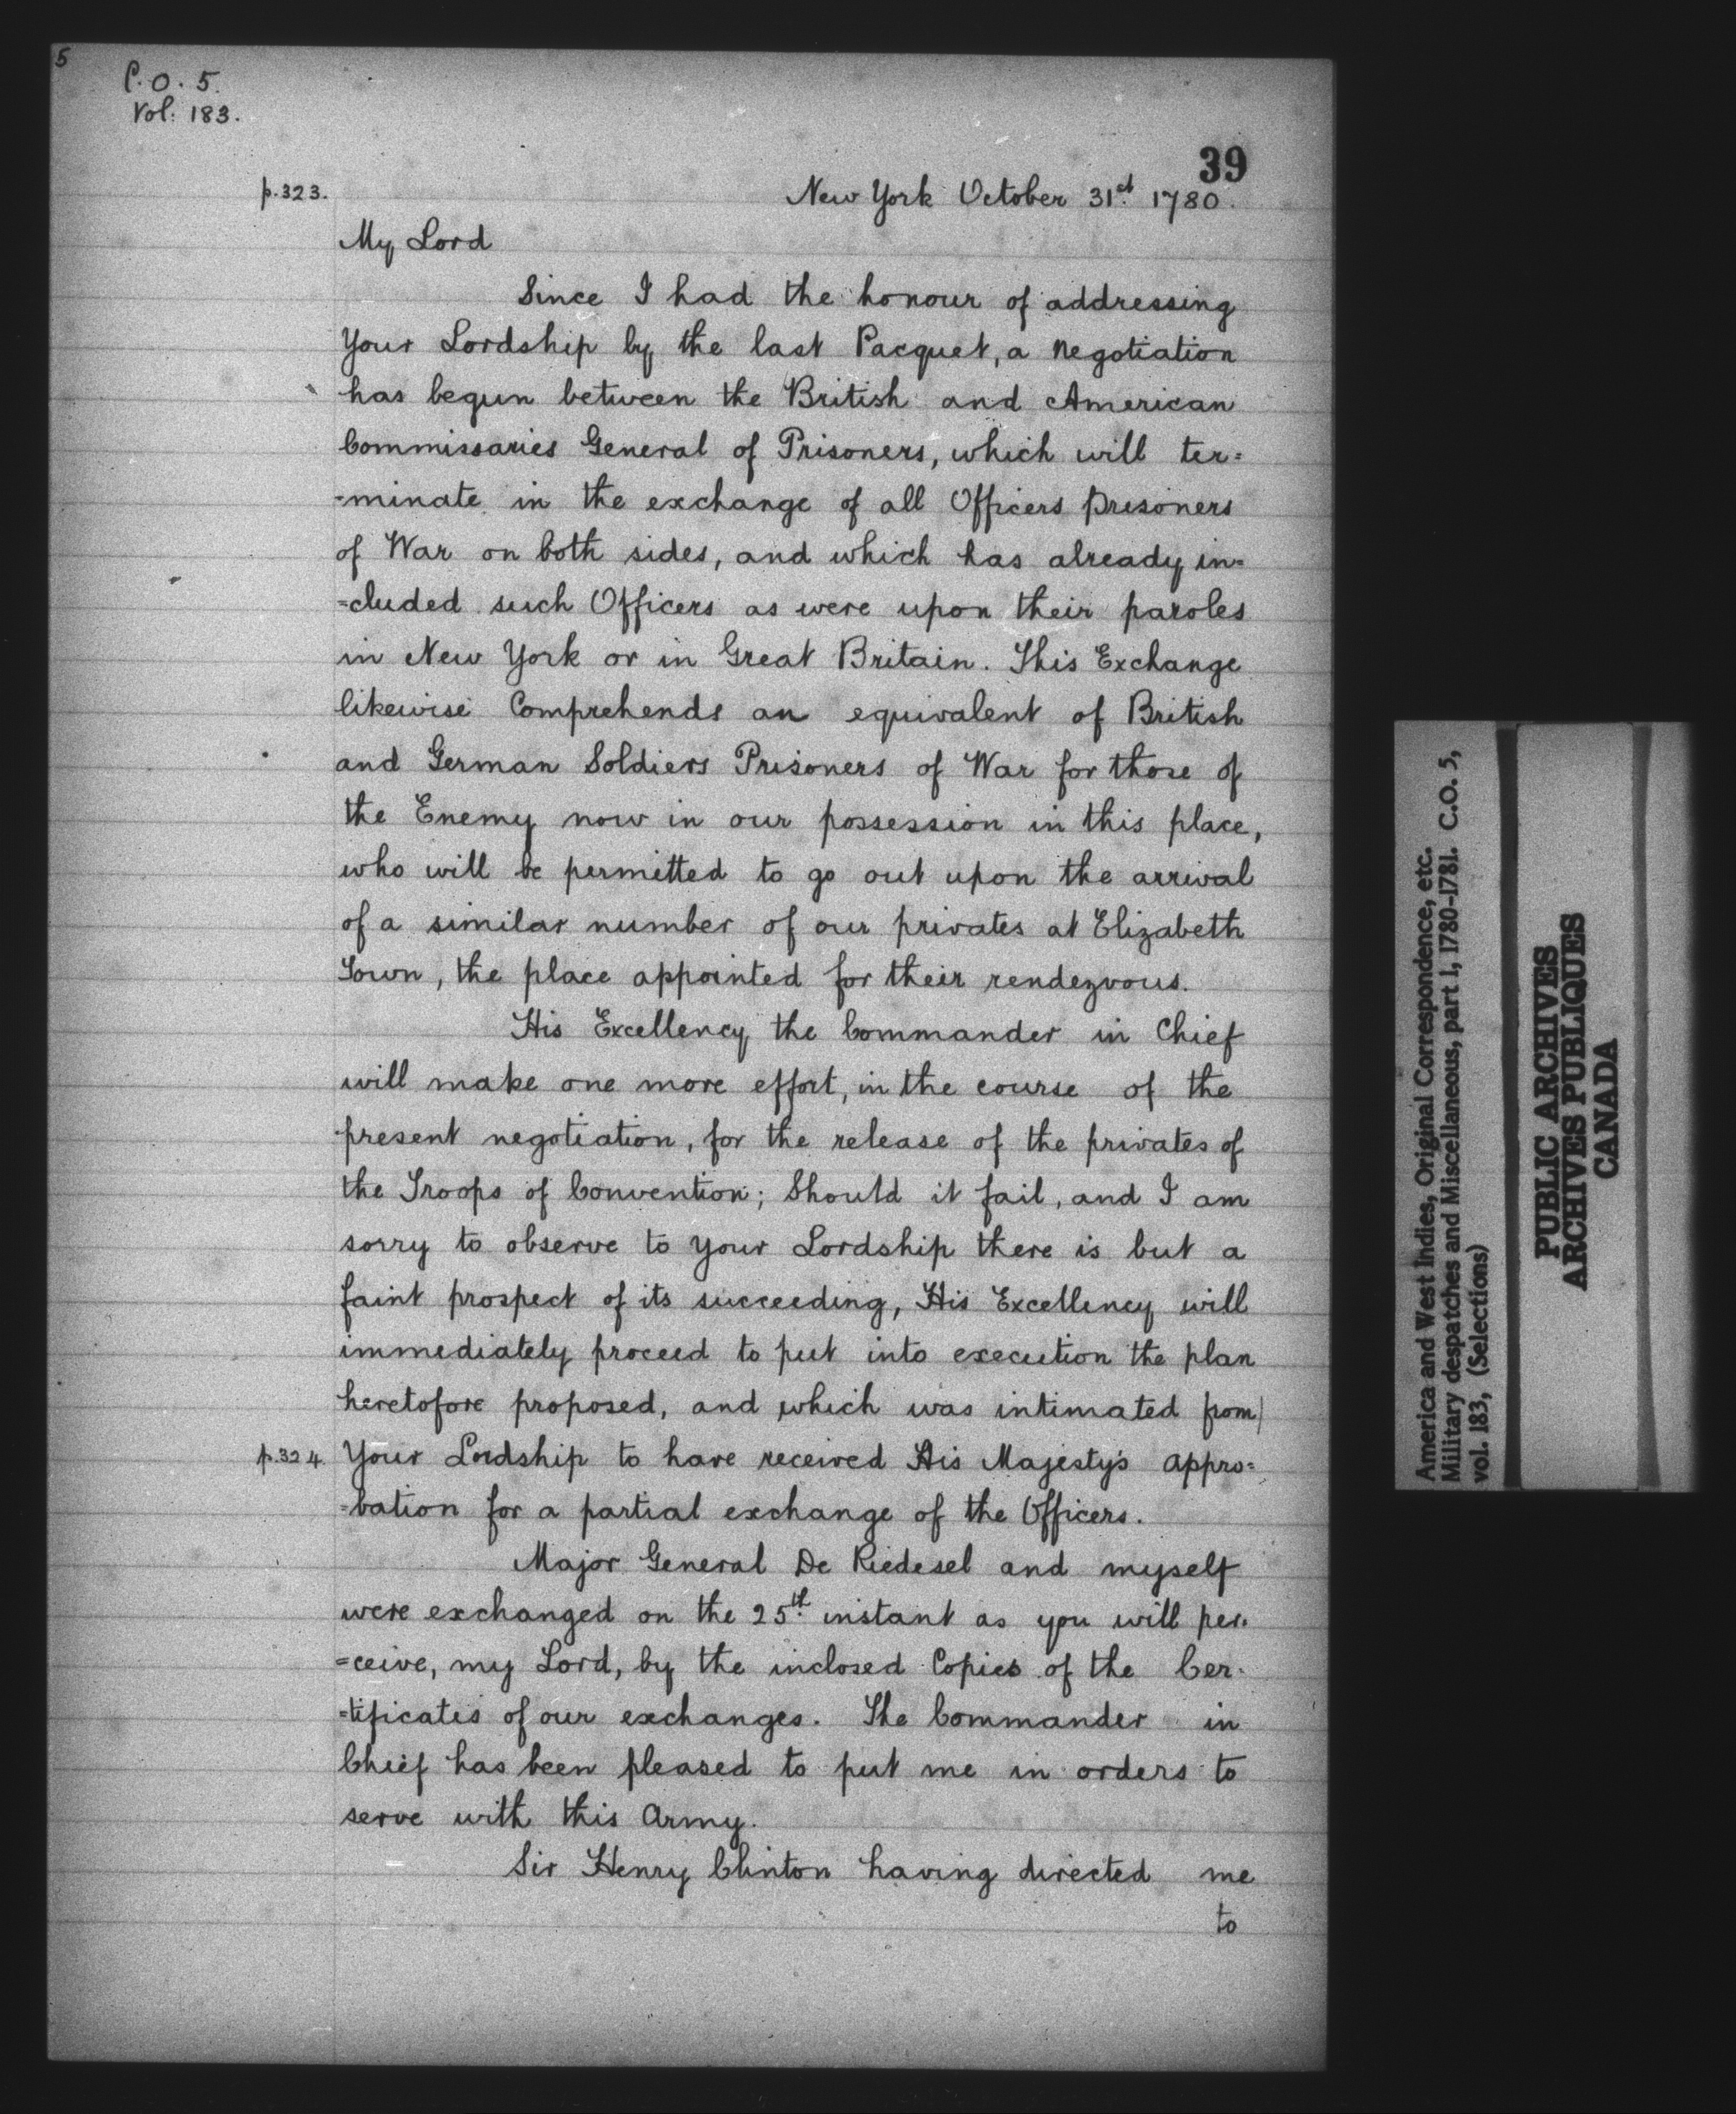 5
C.O. 5.
Vol: 183.
39
p. 323.
New York October 31st. 1780.
My Lord
Since I had the honour of addressing
Your Lordship by the last Pacquet, a negotiation
has begun between the British and American
Commissaries General of Prisoners, which will ter=
-minate in the exchange of all Officers prisoners
of War on both sides, and which has already in=
=cluded such Officers as were upon their paroles
in New York or in Great Britain. This Exchange
likewise Comprehends an equivalent of British
and German Soldiers Prisoners of War for those of
the Enemy now in our possession in this place,
who will be permitted to go out upon the arrival
of a similar number of our privates at Elizabeth
Town, the place appointed for their rendezvous.
His Excellency the Commander in Chief
will make one more effort, in the course of the
present negotiation, for the release of the privates of
the Troops of Convention; Should it fail, and I am
sorry to observe to your Lordship there is but a
faint prospect of its succeeding, His Excellency will
immediately proceed to put into execution the plan
heretofore proposed, and which was intimated from
p. 324. Your Lordship to have received His Majesty's appro=
=bation for a partial exchange of the Officers.
Major General De Riedesel and myself
were exchanged on the 25th. instant as you will per=
=ceive, my Lord, by the inclosed Copies of the Cer=
=tificates of our exchanges. The Commander in
Chief has been pleased to put me in orders to
serve with this Army.
Sir Henry Clinton having directed me
to
America and West Indies, Original Correspondence, etc.
Military despatches and Miscellaneous, part 1, 1780-1781. C.O. 5,
vol. 183, (Selections)
PUBLIC ARCHIVES
ARCHIVES PUBLIQUES
CANADA